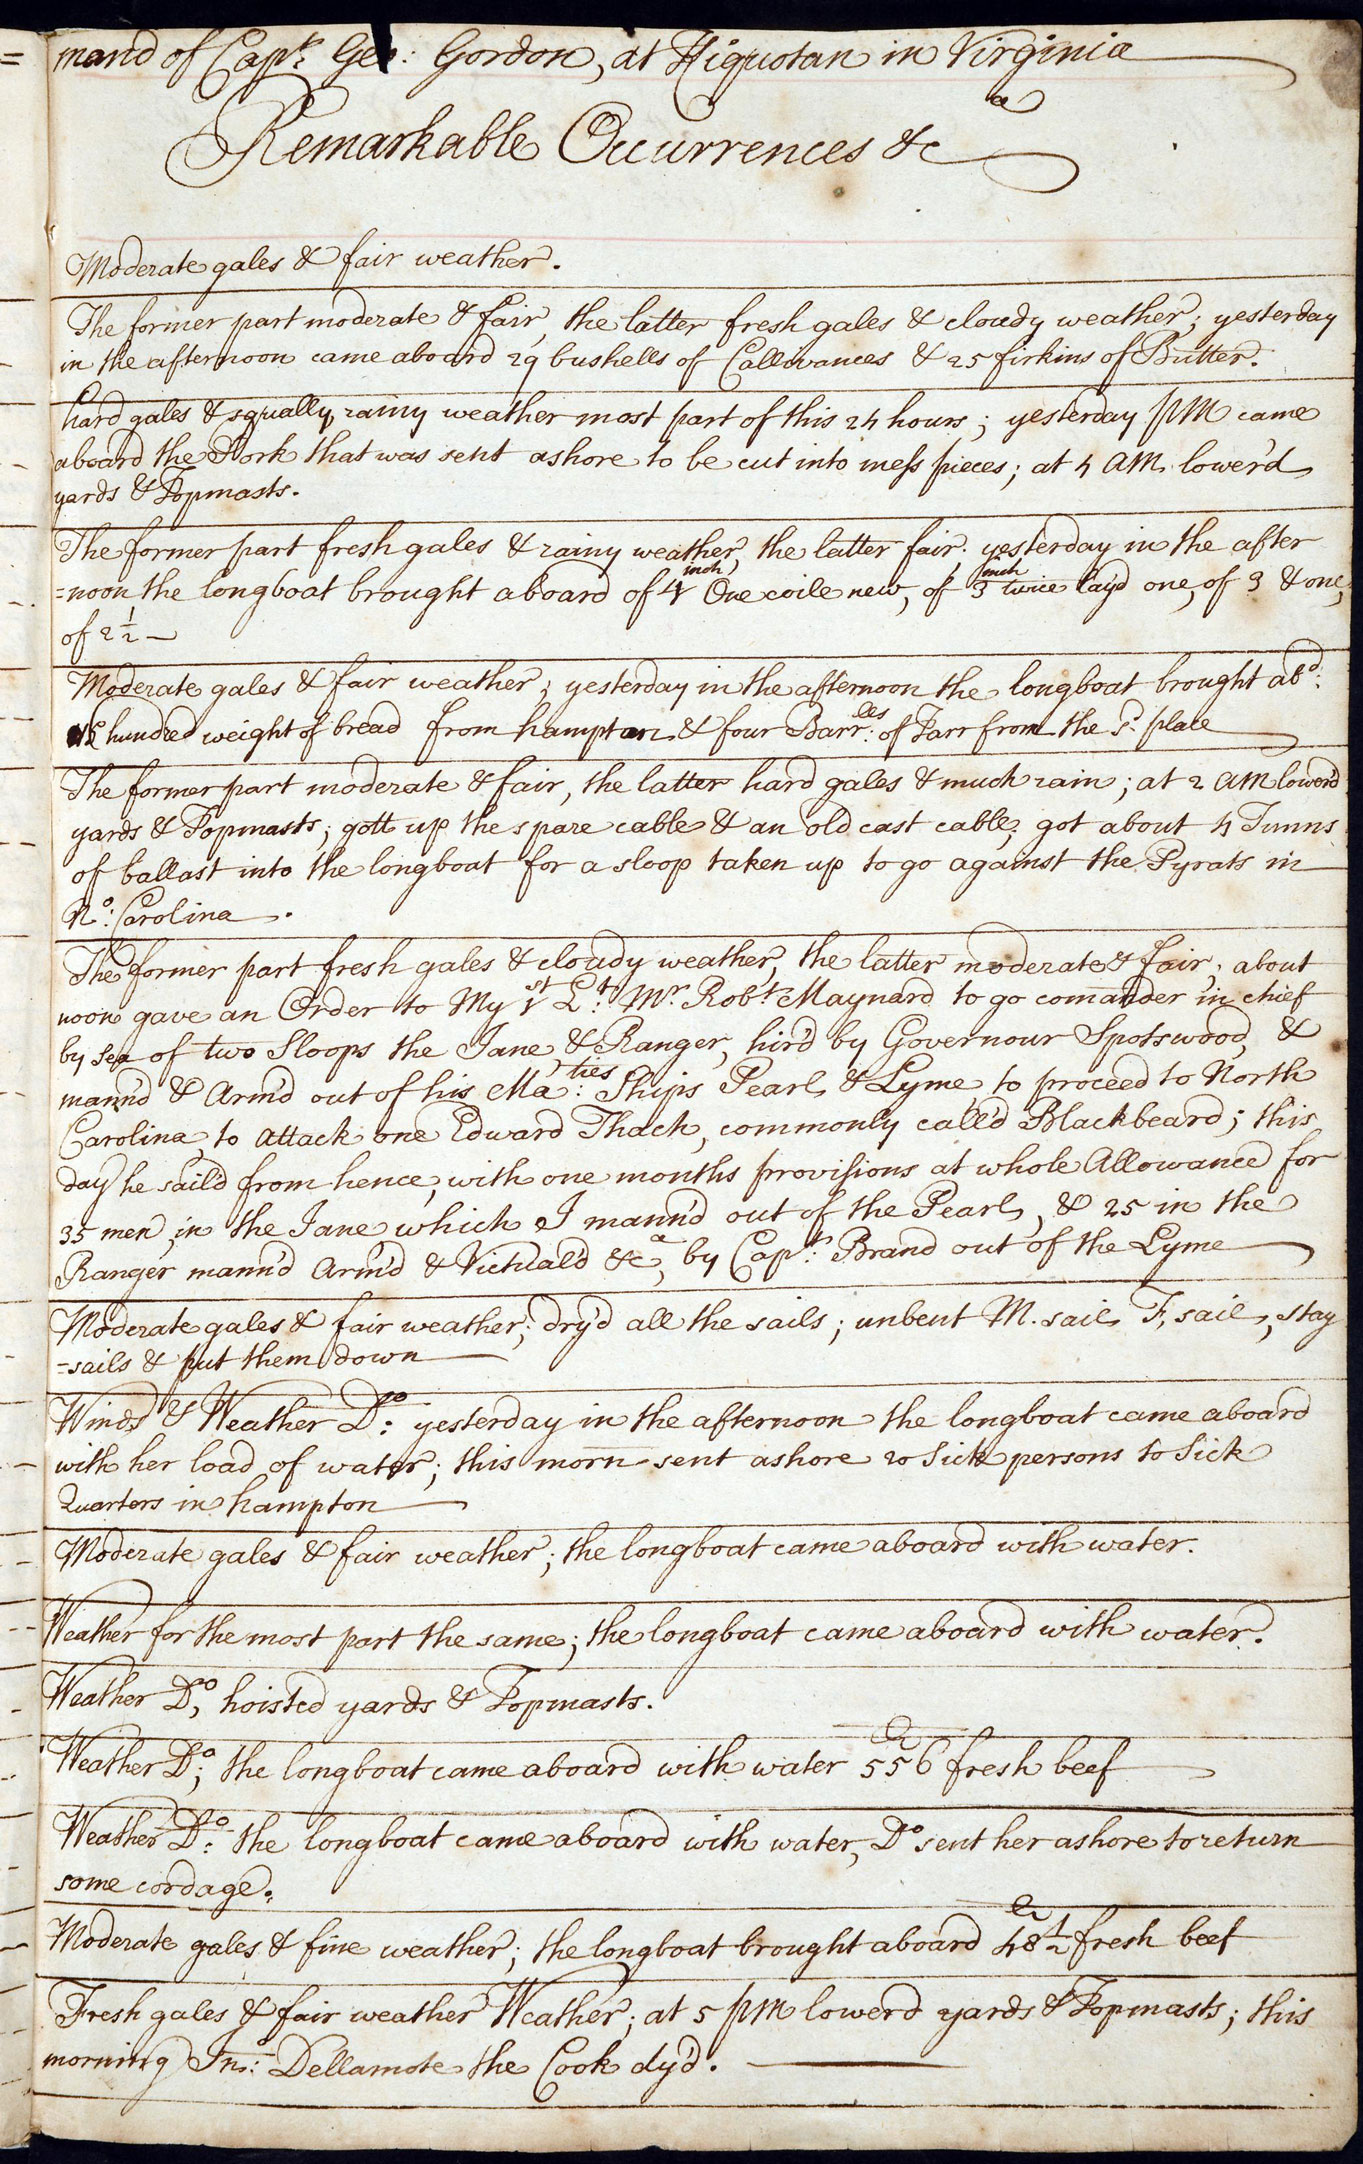 = mand of Capt. Geo: Gordon, at Kiquotan in Virginia
Remarkable Occurrences &ca
Moderate gales & fair weather.
The former part moderate & fair, the latter fresh gales & cloudy weather; yesterday
in the afternoon came aboard 29 bushells of Callivances & 25 firkins of Butter.
hard gales & squally, rainy weather most part of this 24 hours; yesterday PM came
aboard the Pork that was sent ashore to be cut into mess pieces; at 4 AM lower'd
yards & Topmasts.
The former part fresh gales & rainy weather, the latter fair; yesterday in the after
=noon the longboat brought aboard of 4 inch One coile new, of 3 inch twice lay'd one, of 3 & one,
of 2 1/2 —
Moderate gales & fair weather; yesterday in the afternoon the longboat brought abo:
hundred weight of bread from hampton & four Barrles: of Tarr from the sd. place
The former part moderate & fair, the latter hard gales & much rain; at 2 AM lowerd
yards & Topmasts; gott up the spare cable & an old cast cable; got about 4 Tunns
of ballast into the longboat for a sloop taken up to go against the Pyrats in
No: Carolina.
The former part fresh gales & cloudy weather, the latter moderate & fair; about
noon gave an Order to My 1st Lt. Mr. Robt. Maynard to go comander in chief
by sea of two Sloops the Jane, & Ranger, hir'd by Governour Spotswood, &
mann'd & Arm'd out of his Ma:ties Ships Pearl & Lyme, to proceed to North
Carolina, to attack one Edward Thach, commonly call'd Blackbeard; this
day he sail'd from hence, with one months provisions at whole Allowance for
35 men, in the Jane which I mann'd out of the Pearl, & 25 in the
Ranger mann'd Arm'd & Victual'd &ca, by Capt. Brand out of the Lyme
Moderate gales & fair weather; dry'd all the sails; unbent M. sail F, sail, stay
=sails & put them down
Winds & Weather Do: yesterday in the afternoon the longboat came aboard
with her load of water; this morn sent ashore 20 Sick persons to Sick
Quarters in hampton
Moderate gales & fair weather; the longboat came aboard with water.
Weather for the most part the same; the longboat came aboard with water.
Weather Do, hoisted yards & Topmasts.
Weather Do; the longboat came aboard with water 556 fresh beef
Weather Do: the longboat came aboard with water, Do sent her ashore to return
some cordage.
Moderate gales & fine weather; the longboat brought aboard 48 1/2 fresh beef
Fresh gales & fair weather Weather; at 5 pm lowerd yards & Topmasts; this
morning Jno: Dellamote the Cook dy'd.